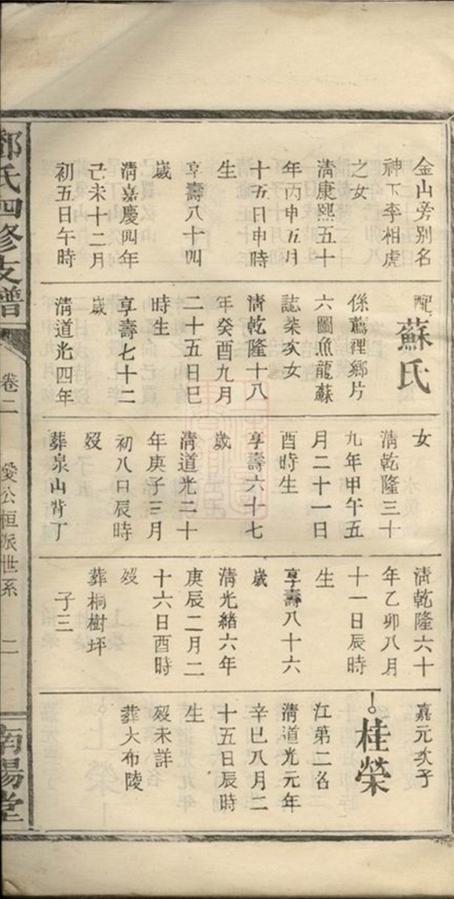 金山旁別名
神下李相虎
之女
清康熙五十
年丙申五月
十五日申時
生
享壽八十四
歲
清嘉慶四年
己未十二月
初五日午時
配蘇氏
係鷰裡鄉片
六圖魚龍蘇
誌柒次女
清乾隆十八
年癸酉九月
二十五日巳
時生
享壽七十二
歲
清道光四年
女
清乾隆三十
九年甲午五
月二十一日
酉時生
享壽六十七
歲
清道光二十
年庚子三月
初八日辰時
歿
葬泉山背丁
清乾隆六十
年乙卯八月
十一日辰時
生
享壽八十六
歲
清光緒六年
庚辰二月二
十六日酉時
歿
葬桐樹坪
子三
嘉元次子
桂榮
江第二名
清道光元年
辛巳八月二
十五日辰時
生
歿未詳
葬大布陵
鄧氏四修支譜
卷二
愛公桓派世系
二
南陽堂